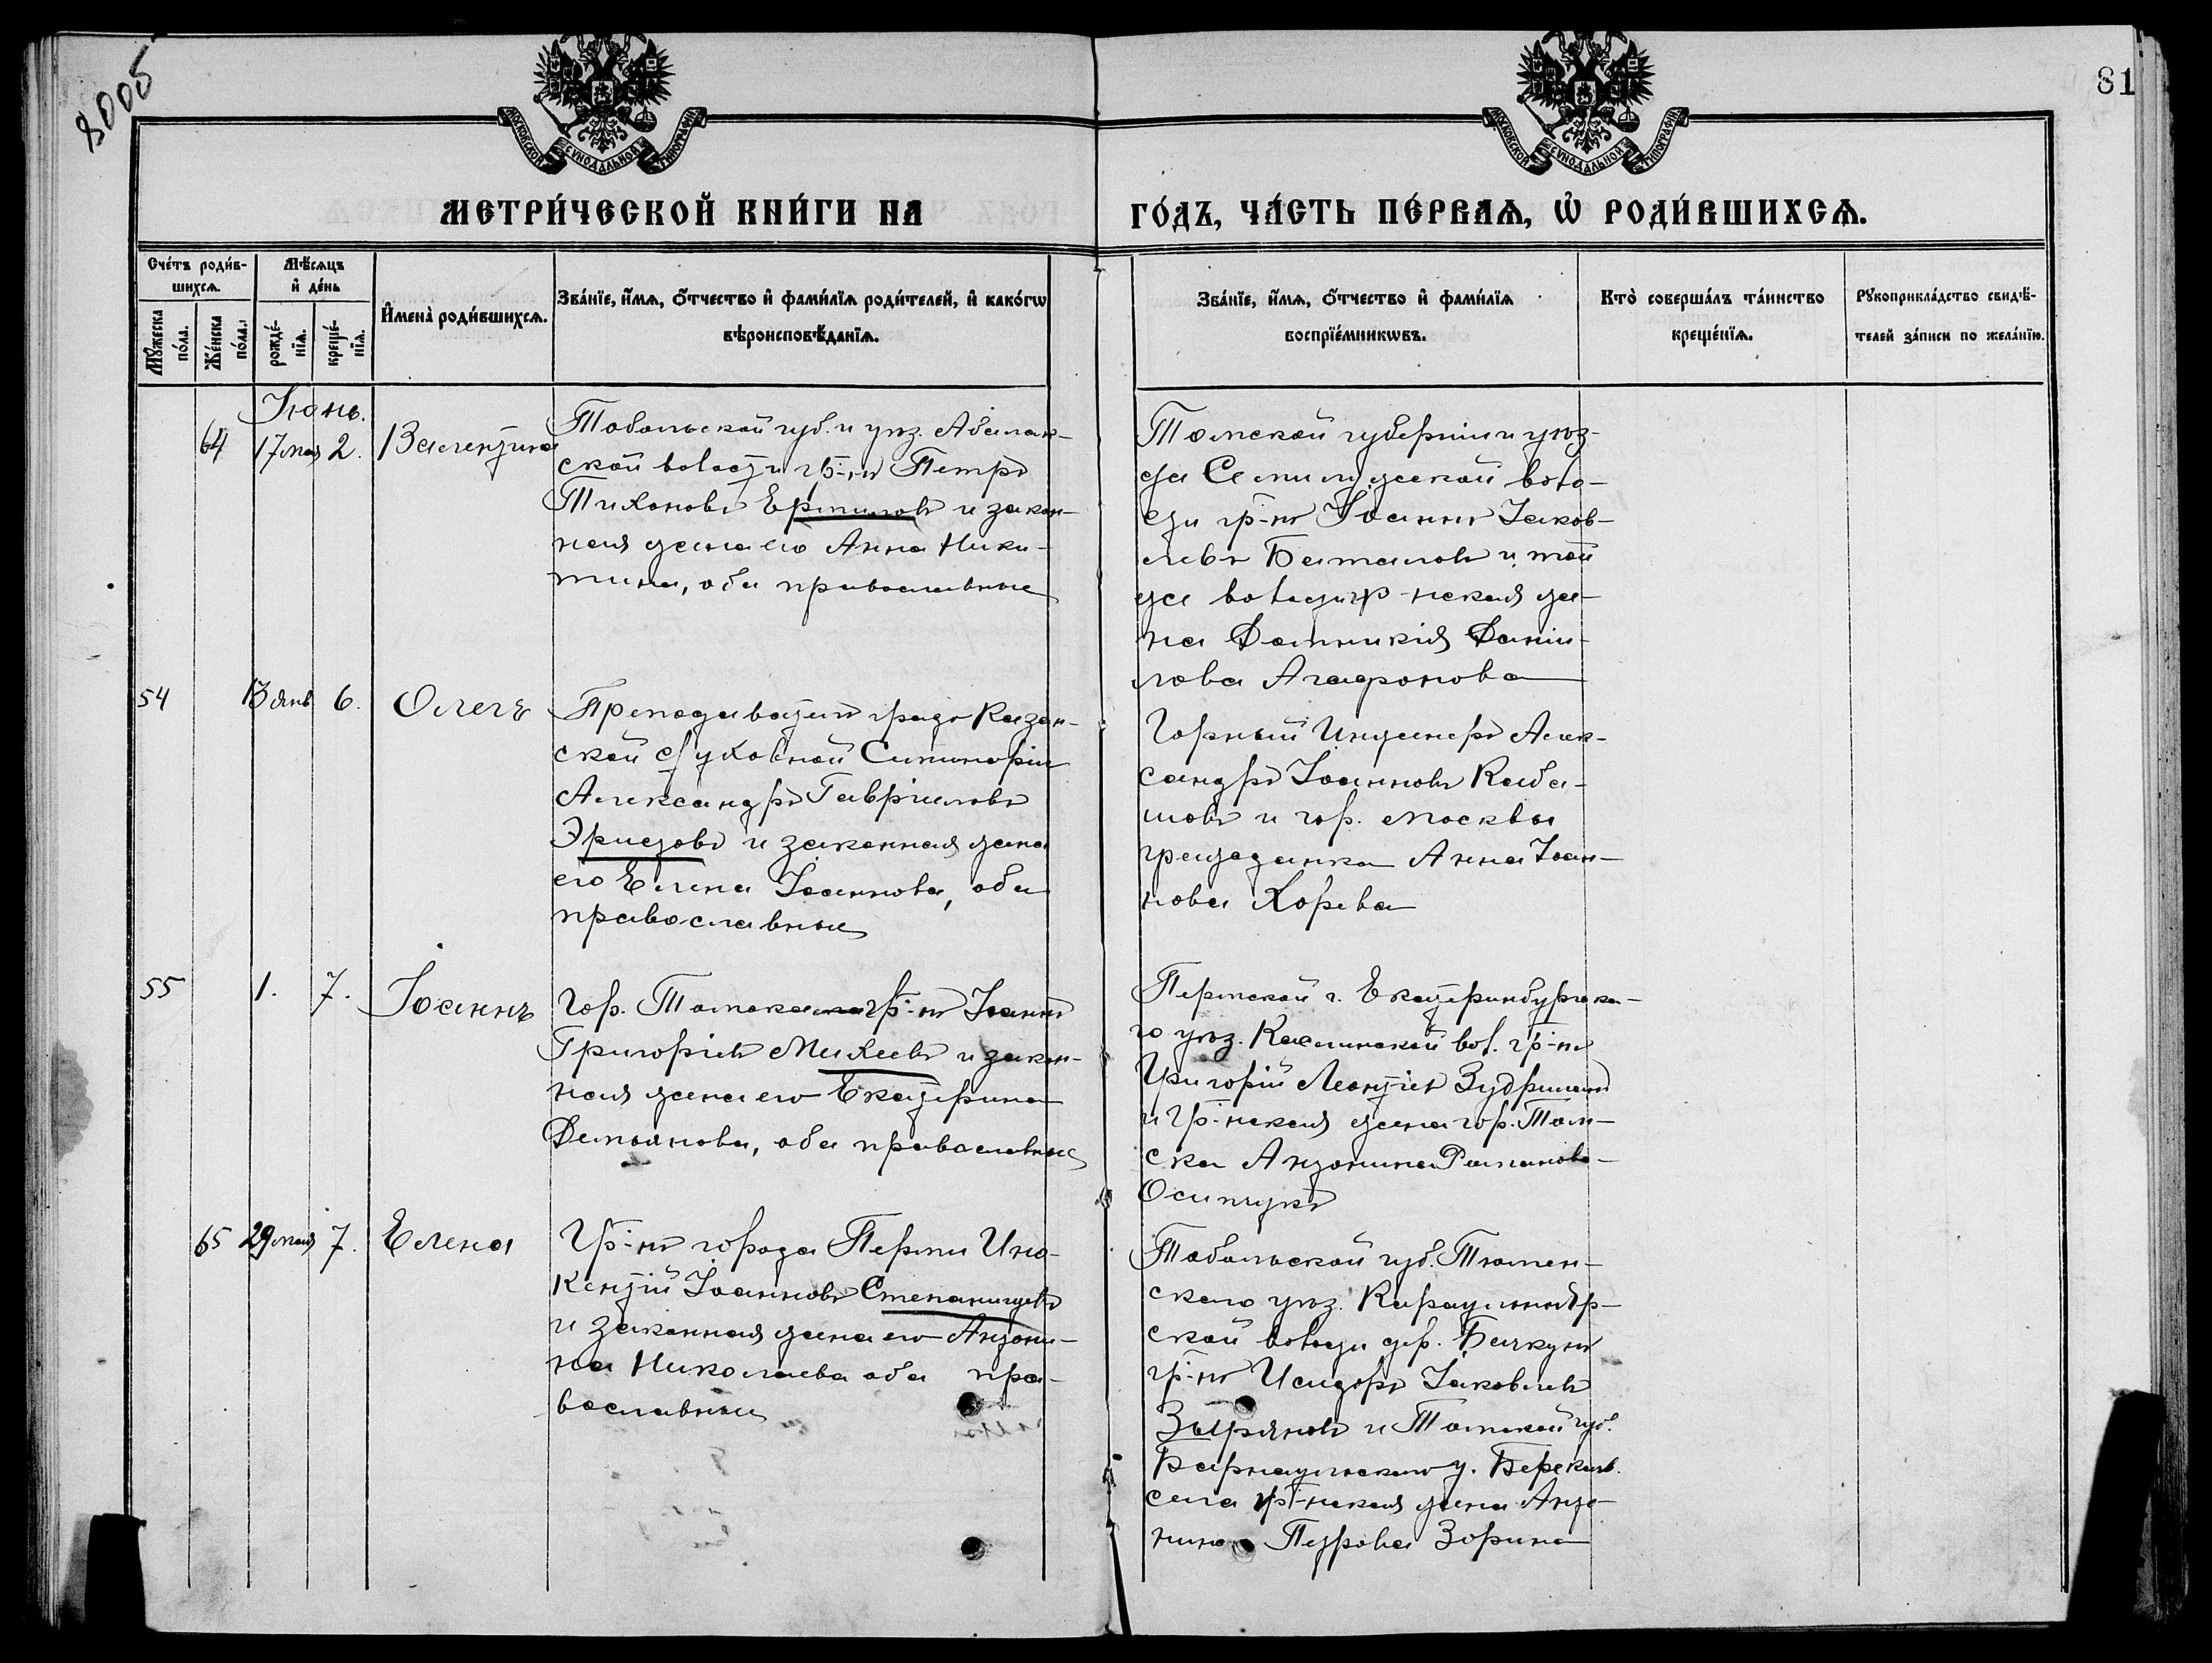 8005
81
МОСКОВСКОЙ СѴНОДАЛЬНОЙ ТИПОГРАФІИ
МОСКОВСКОЙ СѴНОДАЛЬНОЙ ТИПОГРАФІИ
МЕТРИ́ЧЕСКОЙ КНИ́ГИ НА
ГО́ДЪ, ЧА́СТЬ ПЕ́РВАѦ, Ѽ РОДИ́ВШИХСѦ.
Сче́тъ роди́в-
шихсѧ.
Мѣ́сѧцъ
и҆ де́нь
Му́жеска
по́ла.
Же́нска
по́ла.
рожде́-
нїѧ.
креще́-
нїѧ.
И҆мена̀ роди́вшихсѧ.
Зва́нїе, и҆́мѧ, ѻ҆́тчество и҆ фами́лїѧ роди́телей, и҆ како́гѡ
вѣроисповѣ́данїѧ.
Зва́нїе, и҆́мѧ, ѻ҆́тчество и҆ фами́лїѧ
воспрїе́мникѡвъ.
Кто̀ соверша́лъ та́инство
креще́нїѧ.
Рꙋкоприкла́дство свидѣ́-
телей за́писи по жела́нїю.
Іюнь.
64 17 мая 2. Валентина
Тобольской губ. и уѣз. Абалак-
ской волости гр-нъ Петръ
Тихоновъ Ермиловъ и закон-
ная жена его Анна Ники-
тина, оба православные
Томской губерніи и уѣз-
да Семилужской воло-
сти гр-нъ Іоаннъ Іаков-
левъ Баталовъ и той
же волости гр-нская же-
на Домникія Даніи-
лова Агафонова
54 13 янв 6. Олегъ
Преподаватель градо Казан-
ской духовной Семинаріи
Александръ Гавріиловъ
и законная жена
его Елена Іоаннова, оба
православные
Горный Инженеръ Алек-
сандръ Іоанновъ Каба-
новъ и гор. Москвы
гражданка Анна Іоан-
нова Корева
55 1. 7. Іоаннъ
Гор. Томска гр-нъ Іоаннъ
Григоріевъ Михеевъ и закон-
ная жена его Екатерина
Демьянова, оба православные
Пермской г. Екатеринбургска-
го уѣз. Каслинской вол. гр-нъ
Григорій Леонтіевъ
и гр-нская жена гор. Том-
ска Антонина Романова
Осипчукъ
65 29 мая 7. Елена
Гр-нъ города Перми Ино-
кентій Іоанновъ Степанищевъ
и законная жена его Антони-
на Николаева оба пра-
вославные
Тобольской губ. Тюмен-
скаго уѣз. Караульнояр-
ской волости дер. Бачкунъ
гр-нъ Исидоръ Іаковлевъ
Зыряновъ и Томской губ.
Барнаульскаго у.
села гр-нская жена Анто-
нина Петрова Зорина